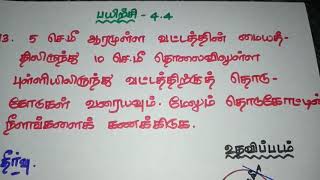 பயிற்சி - 4.4
13. 5 செ.மீ ஆரமுள்ள வட்டத்தின் மையத்
திலிருந்து 10 செ.மீ தொலைவிலுள்ள
புள்ளியிலிருந்து வட்டத்திற்குத் தொடு-
கோடுகள் வரையவும். மேலும் தொடுகோட்டின்
நீளங்களைக் கணக்கிடுக.
உதவிப்படம்
தீர்வு.